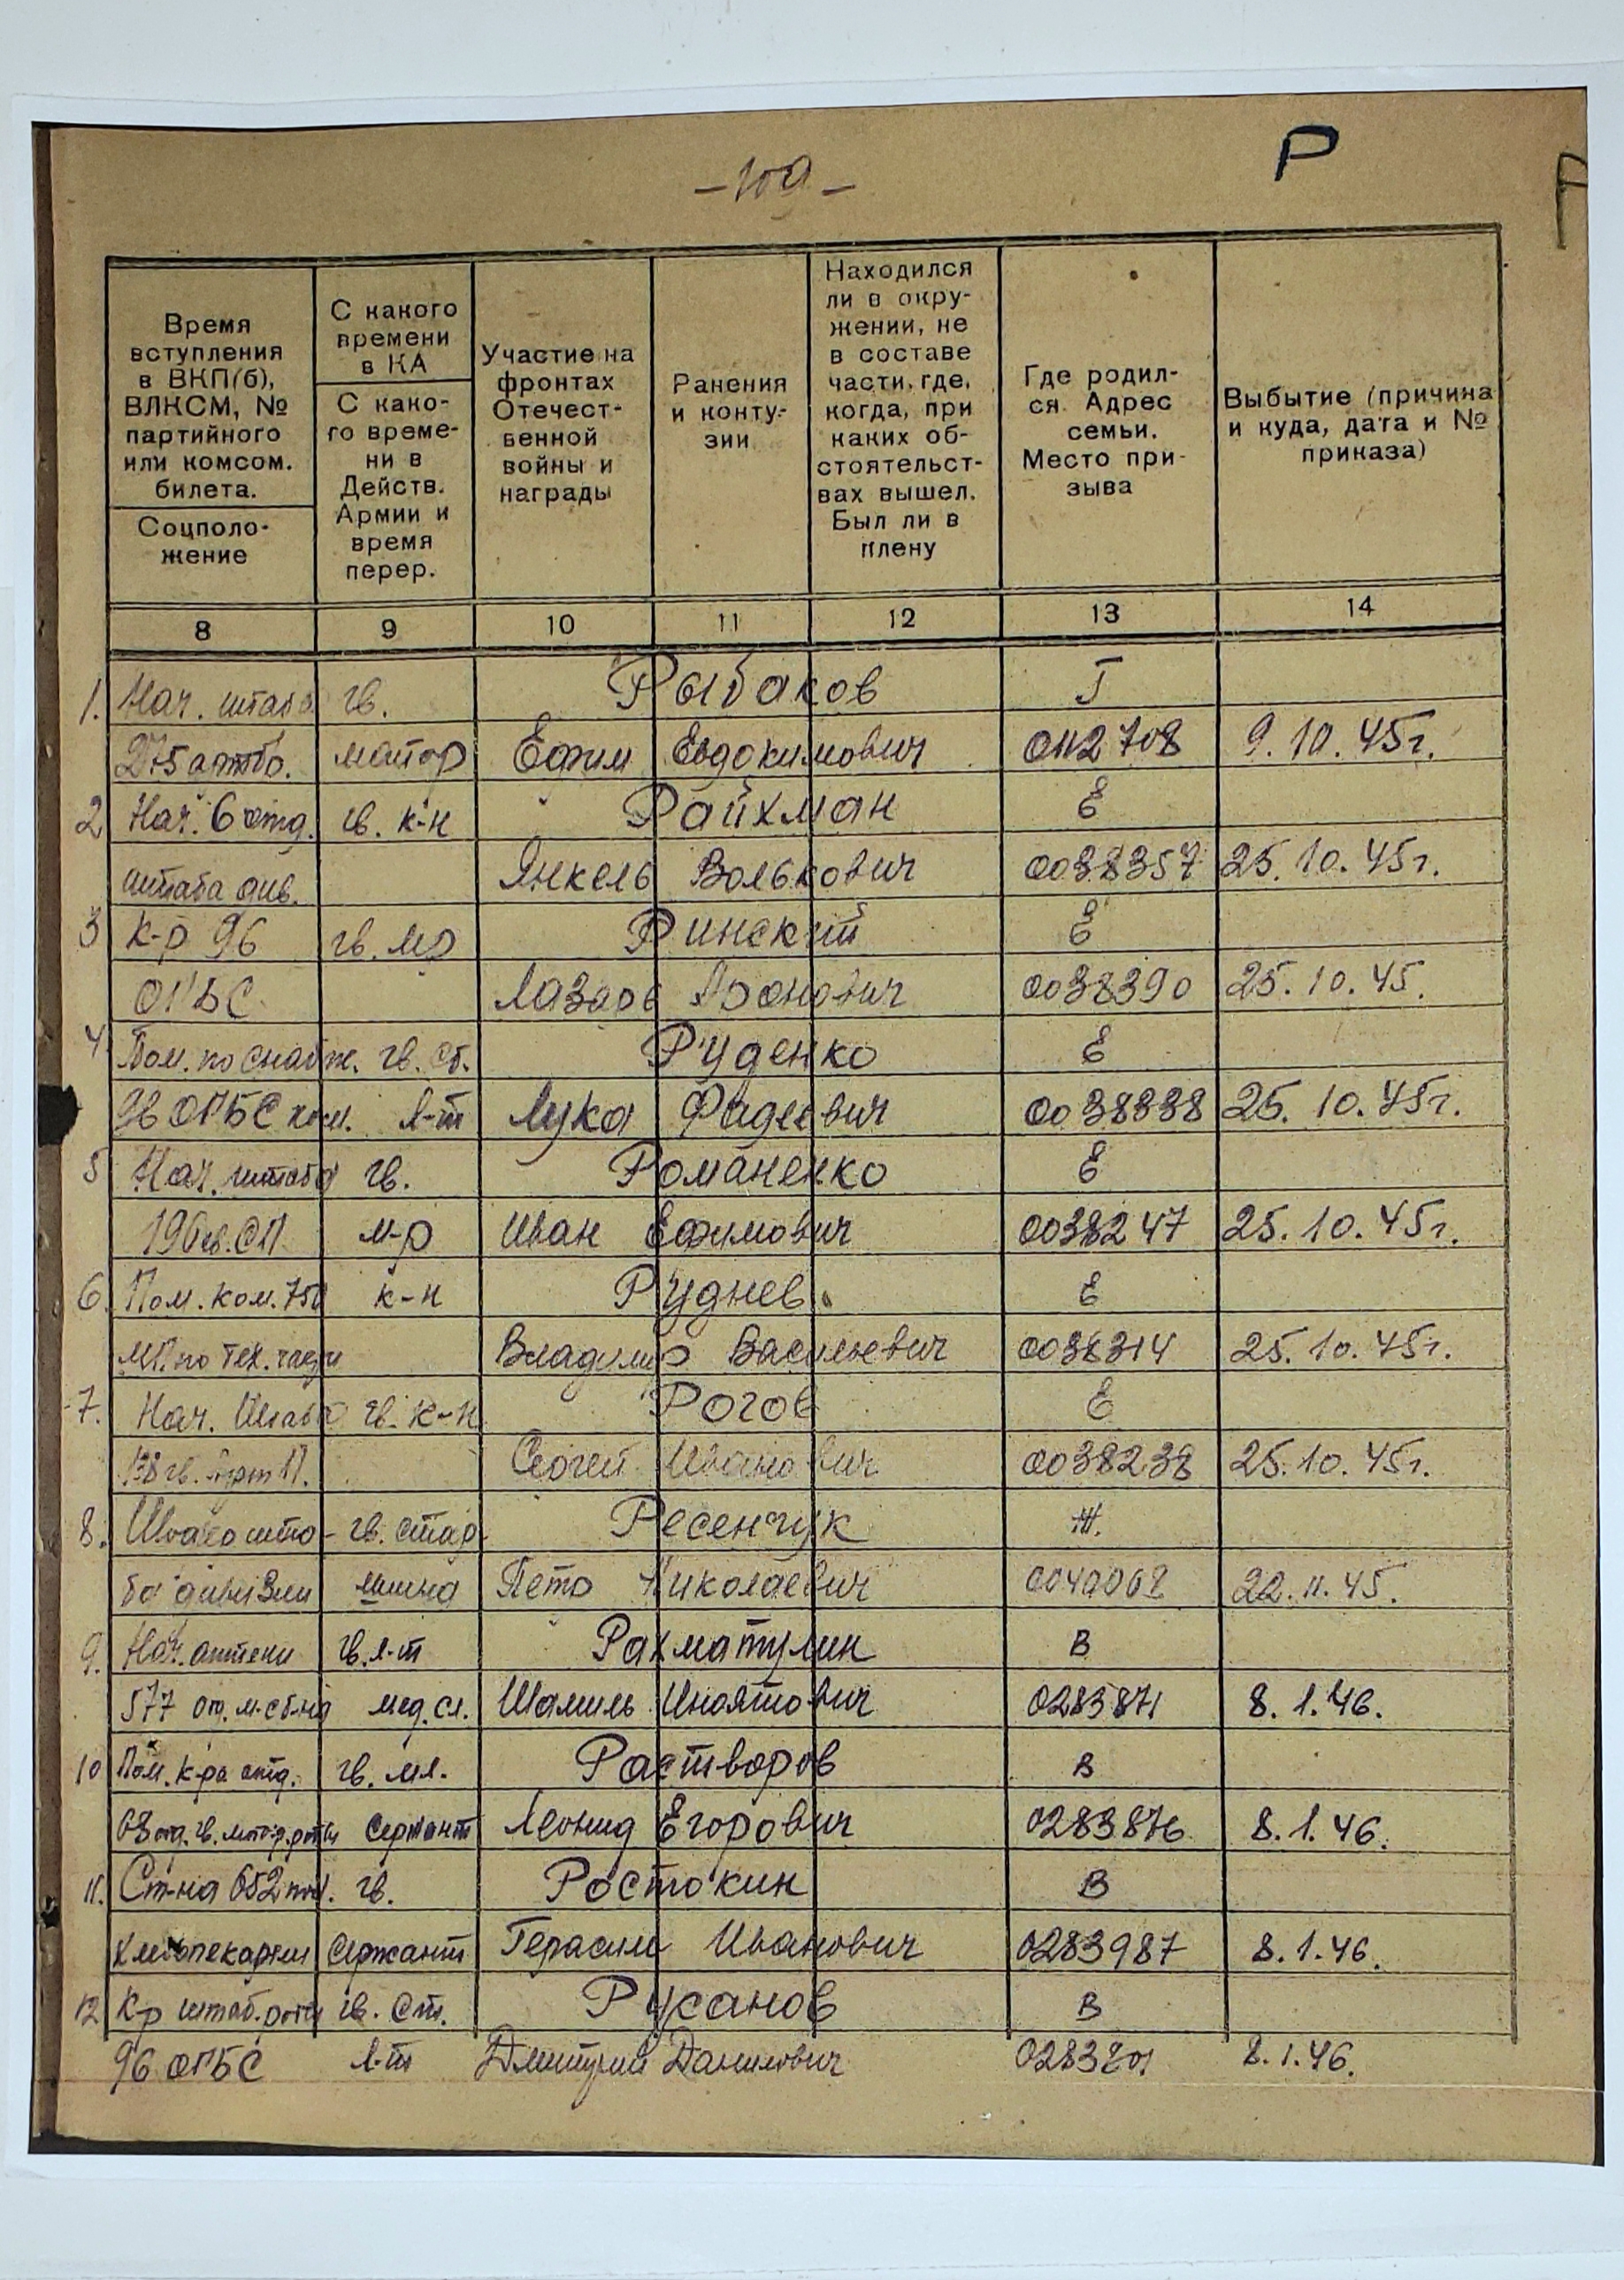 - 109 -
Р
Время
вступления
в ВКП(б),
ВЛКСМ, №
партийного
или комсом.
билета.
Соцполо-
жение
С какого
времени
в КА
С како-
го време-
ни в
Действ.
Армии и
время
перер.
Участие на
фронтах
Отечест-
венной
войны и
награды
Ранения
и конту-
зии
Находился
ли в окру-
жении, не
в составе
части, где,
когда, при
каких об-
стоятельст-
вах вышел.
Был ли в
плену
Где родил-
ся. Адрес
семьи.
Место при-
зыва
Выбытие (причина
и куда, дата и №
приказа)
8 9 10 11 12 13 14
1. Нач. штаба гв. Рыбаков Г
майор Ефим Евдокимович 0112708 9.10.45г.
2 Нач. 6 отд. гв. к-н Райхман Е
штаба див. Янкель Волькович 0038357 25.10.45г.
3 К-р 96 гв. м-р Ринский Е
ОГБС Лазарь Аронович 0038390 25.10.45.
4 Пом. по снабж. гв. ст. Руденко Е
96 ОГБС кап. л-т Лука Фадеевич 25.10.45г.
5 Нач. штаба гв. Романенко Е
190 гв. СП м-р Иван Ефимович 0038247 25.10.45г.
6. Пом. ком. 750 к-н Руднев Е
МП. по тех. части Владимир Васильевич 0038314 25.10.45г.
7. Нач. Штаба гв. к-н Рогов Е
гв. Арт П. Сергей Иванович 0038238 25.10.45г.
8. гв. стар- Ресенчук Ж.
дивизии шина Петр Николаевич 22.11.45.
9. Нач. аптеки гв. л-т Рахматулин В
577 от. м-сб-на мед. сл. Шамиль Иноятович 0283871 8.1.46.
10 Пом. к-ра отд. гв. мл. Растворов В
сержант Леонид Егорович 0283876 8.1.46.
11. Ст-на 652 пол. гв. Ростокин В
хлебопекарни Сержант Герасим Иванович 0283987 8.1.46.
12 К-р штаб. роты гв. Ст. Русанов В
96 ОГБС л-т Дмитрий Данилович 8.1.46.